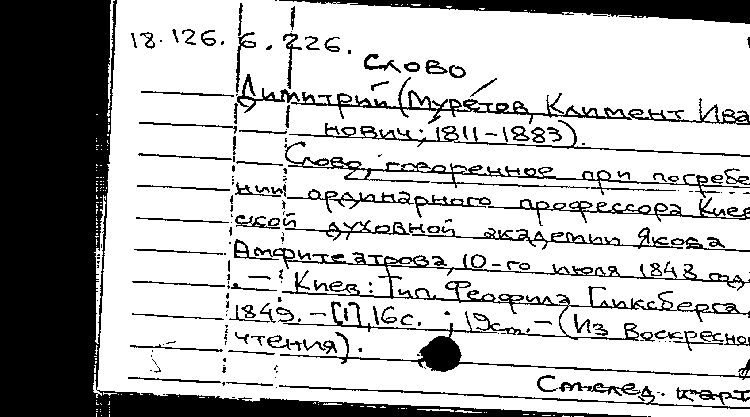 18.126.6.226.
СЛОВО
Димитрий (Муретов, Климент Ива
нович; 1811-1883).
Слово, говоренное при погребе
нии ординарного профессора Киев
ской духовной академии Якова
Амфитеатрова, 10-го июля 1848 года
. — Киев: Тип. Феофила Гликсберга,
1849. - [1], 16с. ; 19см. - (Из Воскресно
чтения).
См. след. карт